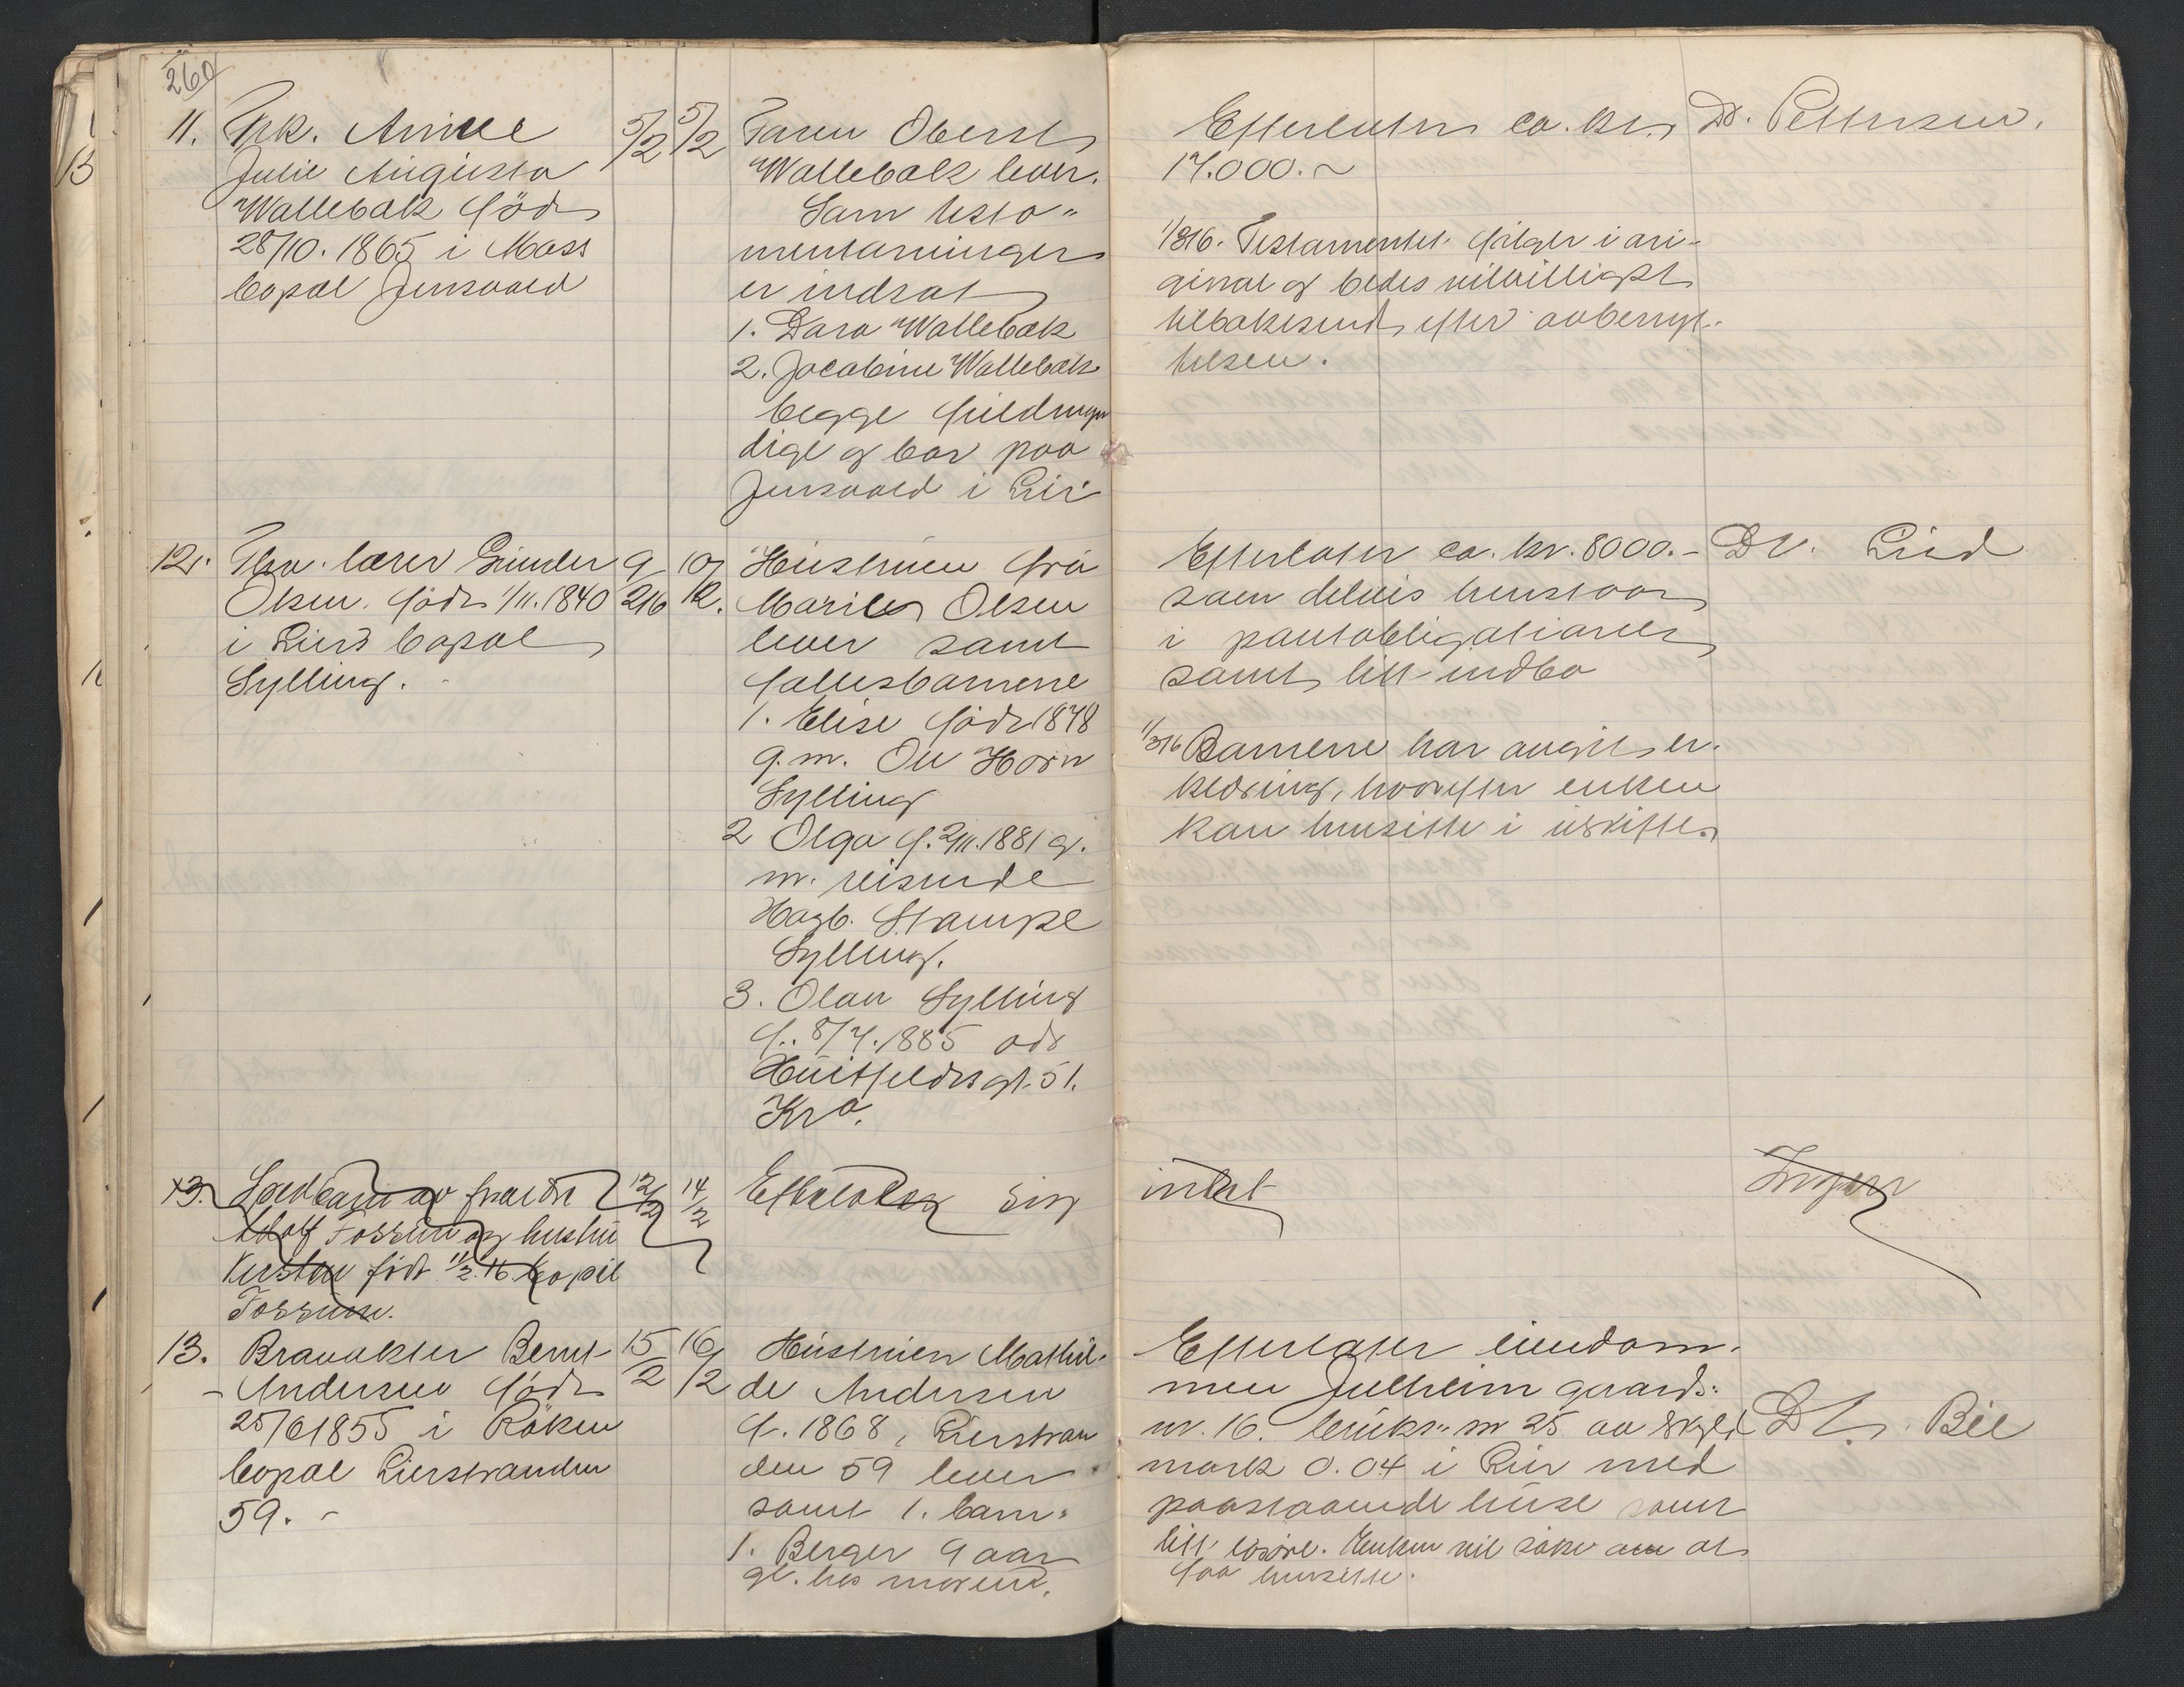 260
11. Frk. Anne
Julie Augusta
Wallebæk född
28/10. 1865 i Moss
bopæl Jensvold
5/2 5/2
Faren Oberst
Wallebæk lever.
Som testa-
mentarvinger
er indsat
1. Dara Wallebæk
2. Jacobine Wallebæk
begge fuldmyn
dige og bor paa
Jensvold i Lier
Efterlater ca. kr.
17.000.~
1/3 16. Testamentet følger i ori-
ginal og bedes velvilligst
tilbakesendt efter avbenyt-
telsen.
Dr. Pettersen.
12. Fhv. lærer Gunder
Olsen. född 1/11. 1840
i Lier bopæl
Sylling.
9/2 16 10/2.
Hustruen fru
Maries Olsen
lever samt
fællesbarnene
1. Elise född 1878
g.m. Ole Horn
Sylling
2 Olga f. 2/11. 1881 g.
m. reisende
Hagb. Stampe
Sylling.
3. Olav Sylling
f. 8/7. 1885 adr
Huitfeldts gt. 51.
Kra.
Efterlater ca. kr. 8000.-
som delvis henstaar
i pantobligationer
samt litt indbo
1/3 16 Barnene har avgit er-
klæring, hvorefter enken
kan hensitte i uskifte.
Dr. Lund
13. Spedbarn av
Adolf Fossum og hustru
Kirstine födt 11/2.16 bopæl
Fossum.
12/2 14/2
Efterlater sig
intet
Ingen
13. Bernt
Andersen född
25/6 1855 i Röken
bopæl Lierstranden
59. -
15/2 16/2
Hustruen Mathil-
de Andersen
f. 1868, Lierstran
den 59 lever
samt 1. barn:
1. Berger 9 aar
gl. hos moren.
Efterlater eiendom-
men Julheim gaards-
nr. 16. bruks- nr 25 av skyld
mark 0.04 i Lier med
paastaaende huse samt
litt lösöre. Enken vil söke om at
faa hensitte.
Dr. Bie